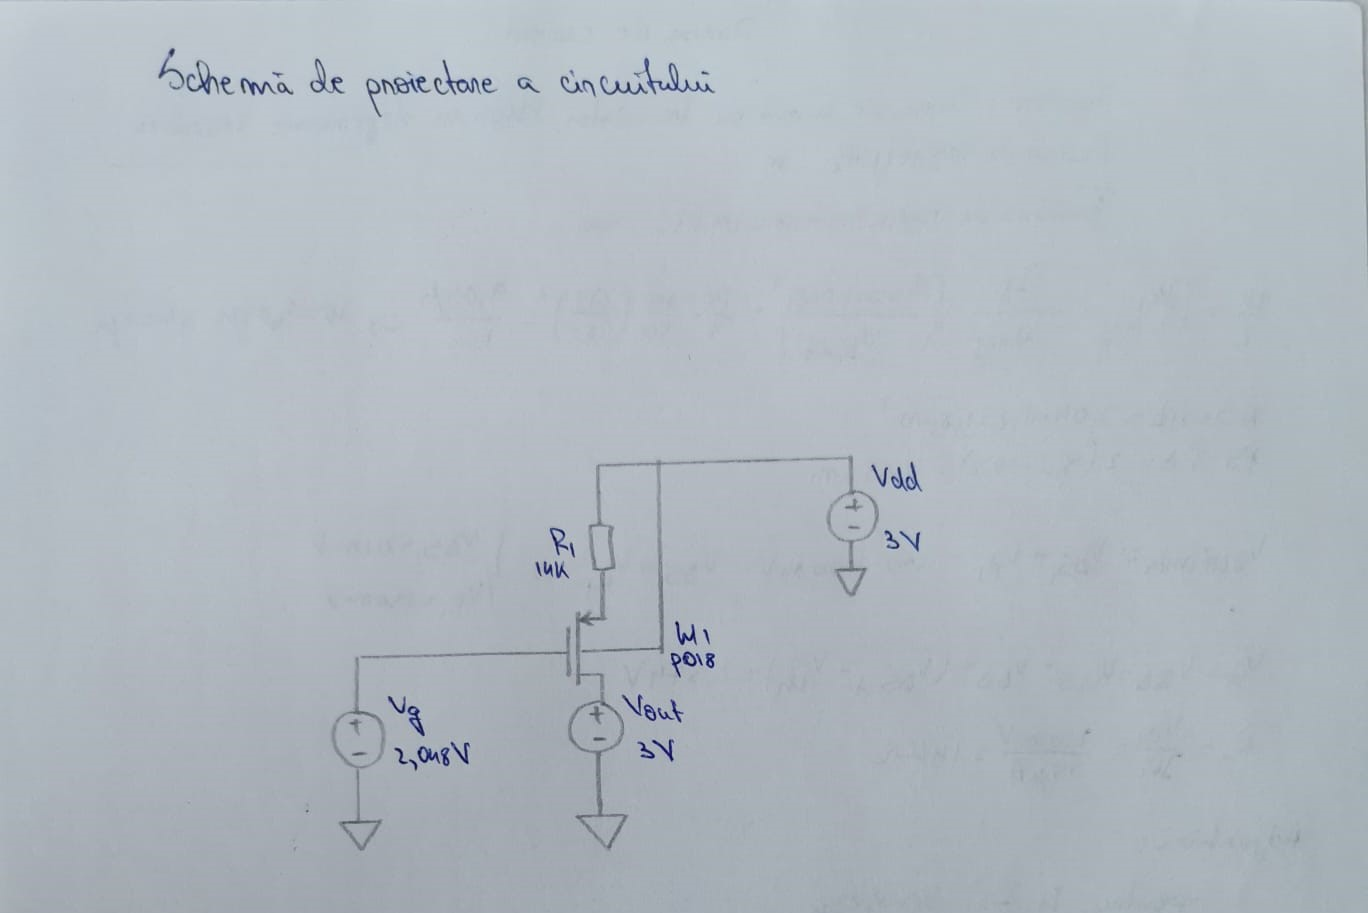 Schemă de proiectare a circuitului
Vdd
3V
R1
14K
M1
p018
Vg
2,048V
Vout
3V